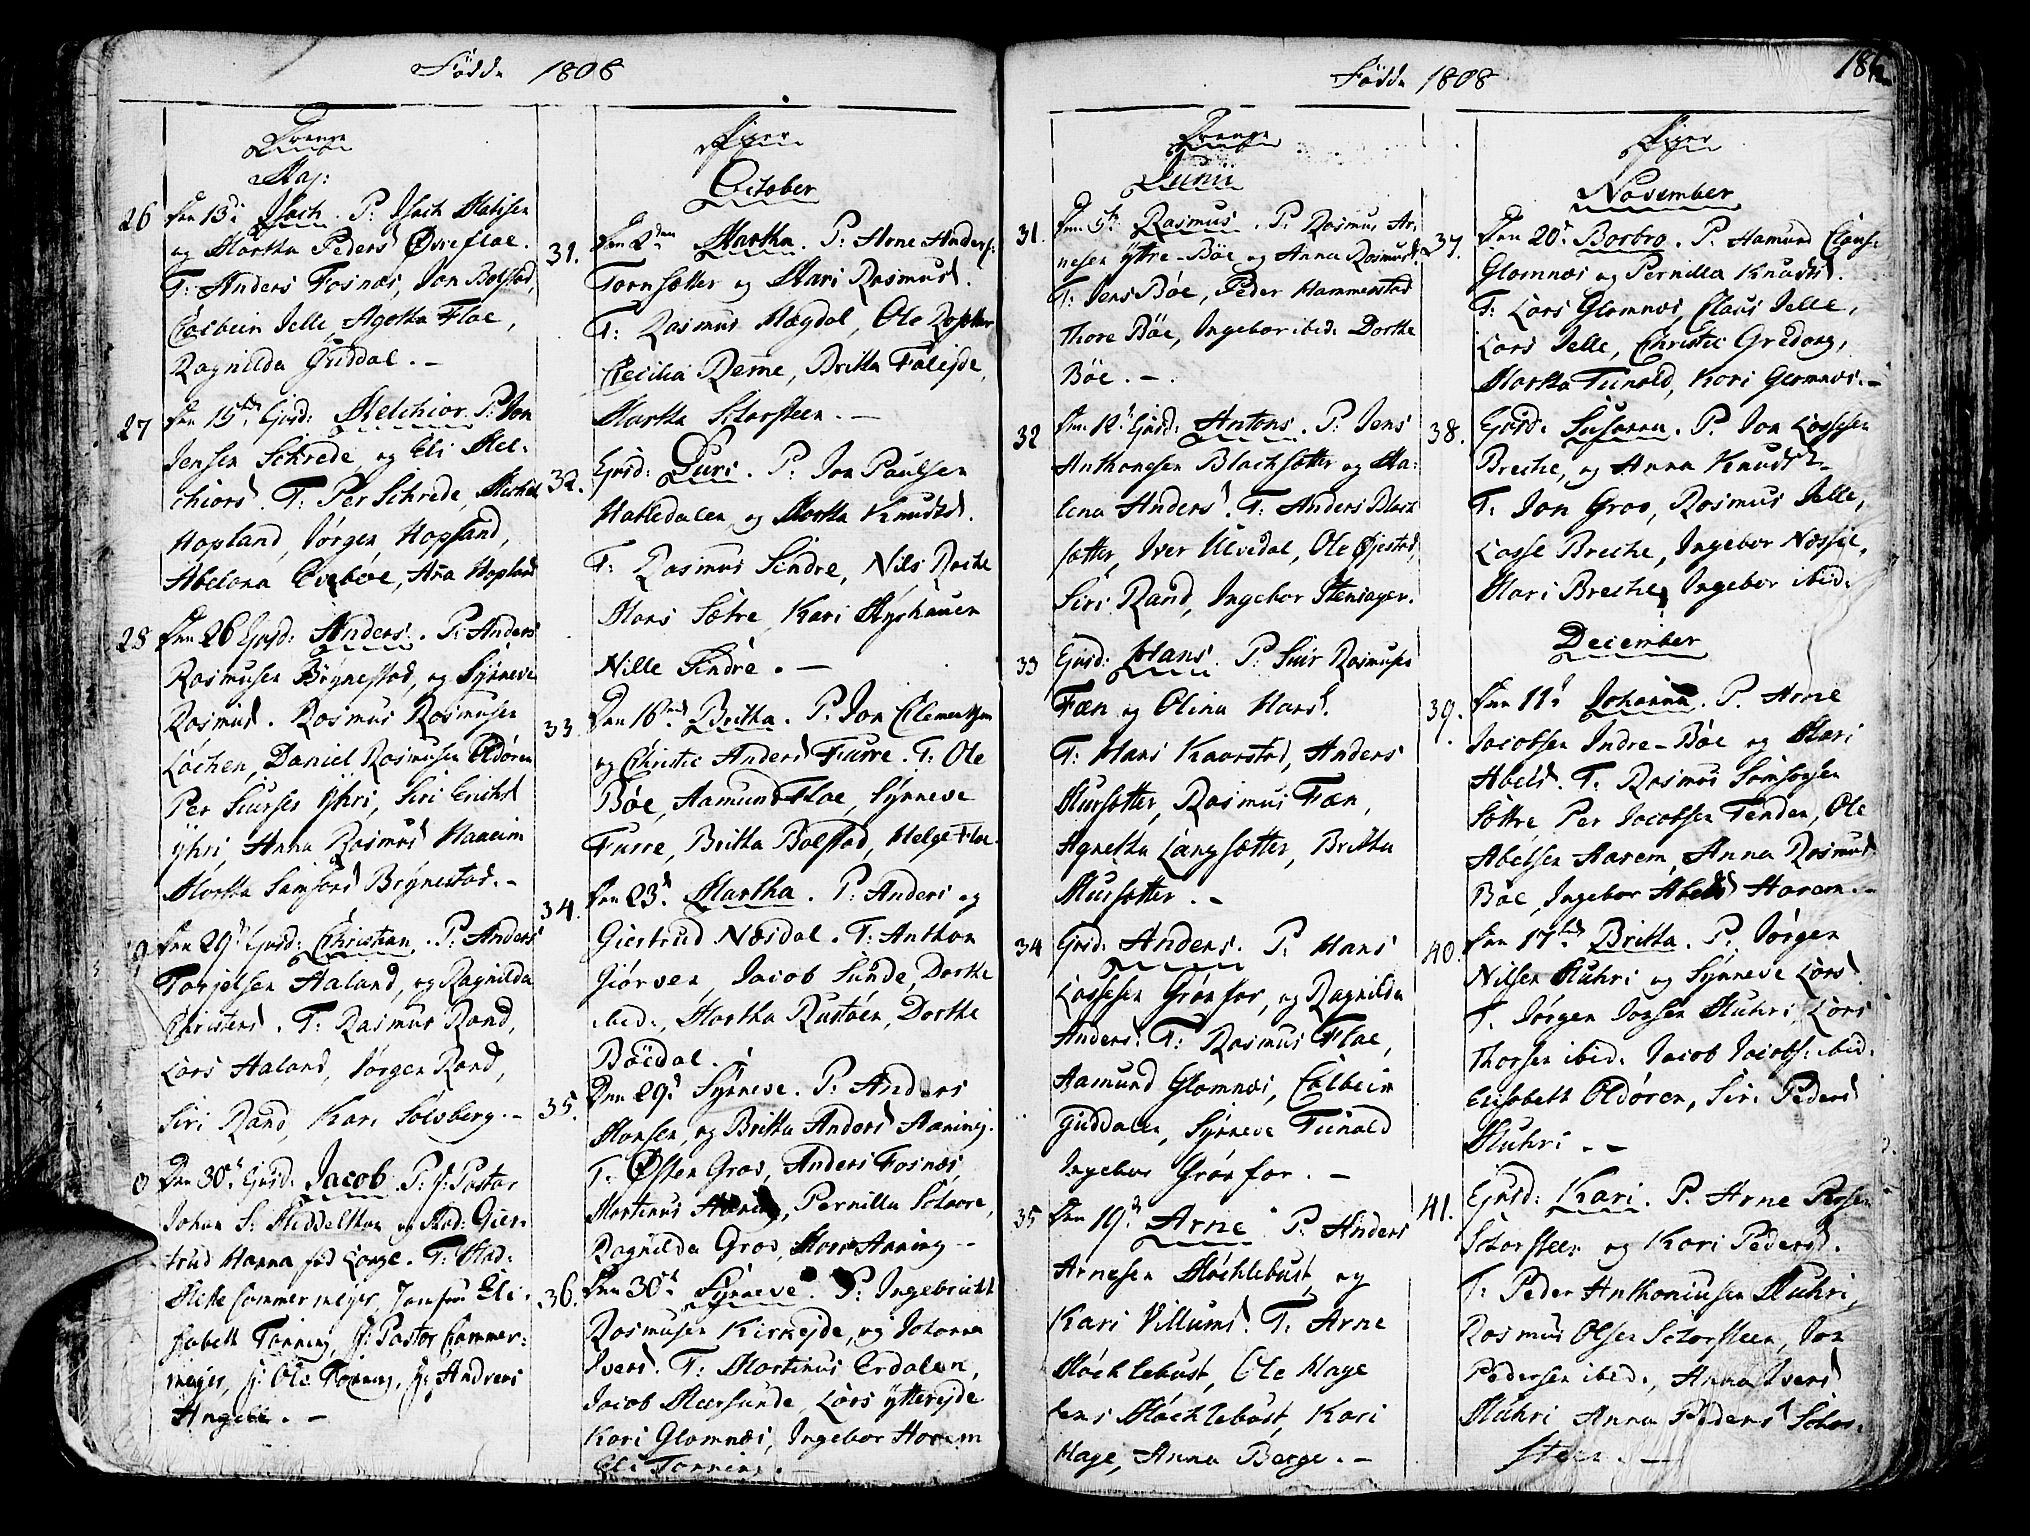 Födde 1808
Drenge
Maj:
26 Den 13de Isach. P: Isach Matisen
og Martha Peders Øvrefloe.
T: Anders Fosnæs, Jon Bolstad,
Colbein Jelle, Agotha Floe,
Ragnilda Guddal. –
27 Den 15de Ejusd: Melchior. P: Jon
Jensen Schrede og Eli Mel-
chiors. T: Per Schrede,
Hopland, Jørgen Hopland,
Abelona Evebøe, Aña Hopland
28 Den 26 Ejusd: Anders. P: Anders
Rasmusen Brÿnestad, og Sÿnneve
Rasmusd. Rasmus Rasmusen
Löchen, Daniel Rasmusen Oldören
Per Siurses Ÿhri, Siri Erichsd
Ÿhri, Anna Rasmusd Haaeim
Martha Samsonsd Brÿnestad. –
Den 29d Ejusd: Christian. P: Anders
Torjelsen Aaland, og Ragnilda
Christensd. T: Rasmus Rand,
Lars Aaland, Jørgen Rand,
Siri Rand, Kari Solsberg. –
Den 30te Ejusd: Jacob P: Hr: Pastor
Johan S: Middelthon og Mad: Gier-
trud Hanna fød Lange. T: Mad:
Mette Commermeÿer, Jomfru Eli-
sabeth Tønning, Hr: Pastor Commer-
meÿer, Hr: Ole Tønning, Hr: Andreas
Angell. –
Piger
October
31. Den 2den Martha. P: Arne Anders:
Tornsætter og Mari Rasmusd.
T: Rasmus Mægdal, Ole
Cecilia Reme, Britha Faleÿde,
Martha Storsteen. –
32. Ejusd: Guri. P: Jon Paulsen
Hattedalen, og Martha Knudsd.
T: Rasmus Sindre, Nils Rache
Mons Sætre, Kari Mÿrhauen
Nille Sindre. –
33. Den 16de Britha. P: Jon Clementsen
og Christie Andersd Furre. T: Ole
Böe, Aamund Floe, Sÿnneve
Furre, Britha Bolstad, Helge Floe.
34. Den 23d Martha. P: Anders og
Giertrud Næsdal. T: Anthon
Giörven, Jacob Sunde, Dorthe
ibid:, Martha Rustöen, Dorthe
Böedal.
35. Den 29d Sÿnneve. P: Anders
Monsen, og Britha Andersd Hæning.
T: Østen Groe, Anders Fosnæs,
Martinus, Pernilla Solvove,
Ragnilda Groe, Anning –
36. Den 30te Sÿnneve. P: Ingebricht
Rasmusen Kirkeÿde, og Johanna
Iversd. T: Martinus Erdalen,
Jacob Meersunde, Lars Ÿttereÿde
Kari Glomnæs, Ingebor Horem
Eli Tønning. –
Födde 1808
186
Drenge
Junii
31. Den 5te Rasmus. P: Rasmus Ar-
nesen Ÿttre-Böe og Anna Rasmusd.
T: Jens Böe, Peder Hammerstad
Thore Böe, Ingebor ibid: Dorthe
Böe. –
32 Den 12t Ejusd: Antons. P: Jens
Anthonesen Blachsætter og Ma-
lena Andersd. T: Anders Blach
sætter, Iver Ulvedal, Ole Øÿestad,
Siri Rand, Ingebor Stensager.
33 Ejusd: Hans P: Siur Rasmusen
Fæn og Olina Hansd.
T: Hans Kaarstad, Anders
Mursætter, Rasmus Fæn,
Agnetha Langsætter, Britha
Mursætter. –
34 Ejusd: Anders. P: Hans
Lassesen Grönfor, og Ragnilda
Andersd. T: Rasmus Floe,
Aamund Glomnæs, Colbein
Guddalen, Sÿnneve Tunold
Ingebor Grönfor. –
35 Den 19de Arne P: Anders
Arnesen Möchlebust, og
Kari Villumsd. T: Arne
Möchlebust, Ole Hage
Jens Möchlebust, Kari
Hage, Anna Berge. –
Piger
November
37. Den 20d Borbro. P: Aamund Claus:
Glomnæs og Pernilla Knudsd.
T: Lars Glomnæs, Claus Jelle,
Lars Jelle, Christie Gredung,
Martha Tunold, Kari Glomnæs. –
38. Ejusd: Susanna. P: Jon Lassesen
Breche, og Anna Knudsd –
T: Jon Groe, Rasmus Jelle,
Lasse Breche, Ingebor Næssie,
Mari Breche, Ingebor ibid:
December
39. Den 11d Johanna. P: Arne
Jacobsen Indre-Böe og Mari
Abelsd. T: Rasmus Samsogsen
Sættre, Per Jacobsen Tenden, Ole
Abelsen Aarem, Anna Rasmusd
Böe, Ingebor Abelsd Harem. –
40. Den 17de Britha. P: Jørgen
Nilsen Muhri og Sÿnneve Larsd.
T. Jørgen Jonsen Muhri, Lars
Thorsen ibid: Jacob Jacobs: ibid:
Elisabeth Oldören, Siri Pedersd
Muhri. –
41. Ejusd: Kari. P. Arne Rasm
Storsteen og Kari Pedersd.
T: Peder Anthoniusen Muhri,
Rasmus Olsen Storsteen, Jon
Pedersen ibid:, Anna Iversd
Muhri Anna Pedersd Stor-
steen. –